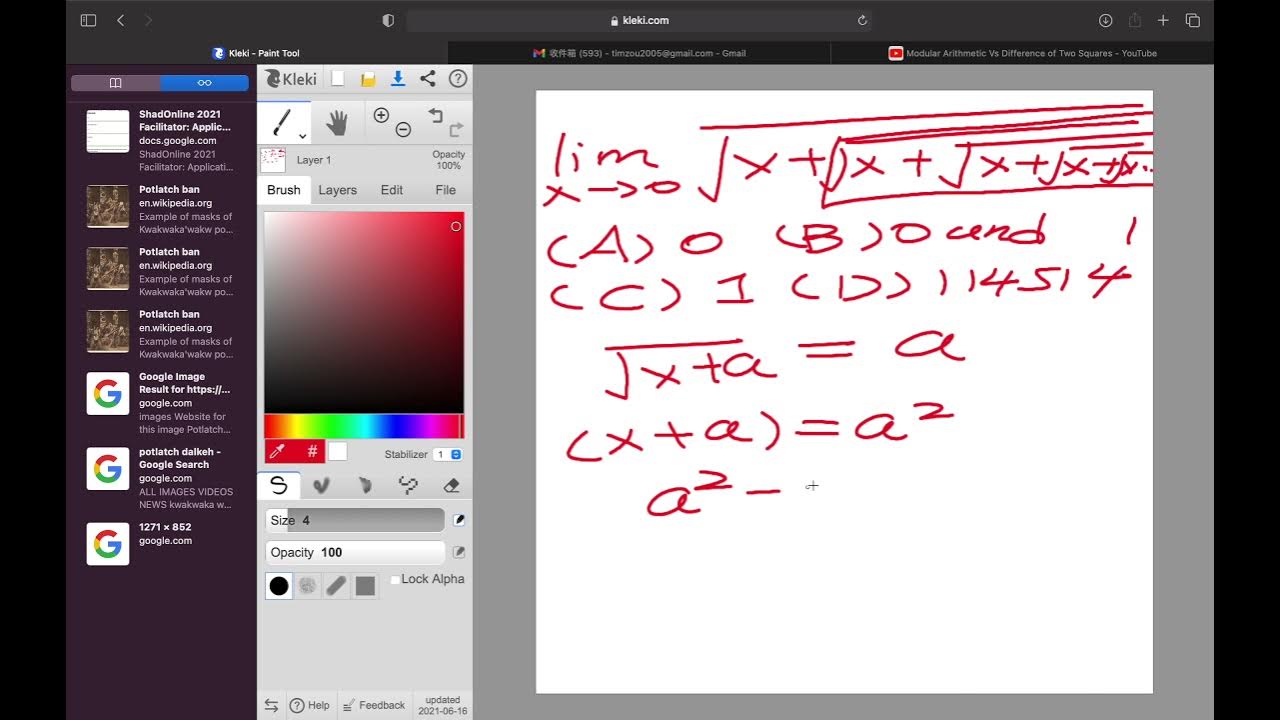 kleki.com
Kleki - Paint Tool
收件箱 (593) - timzou2005@gmail.com - Gmail
Modular Arithmetic Vs Difference of Two Squares - YouTube
ShadOnline 2021
Facilitator: Applic...
docs.google.com
ShadOnline 2021
Facilitator: Applicati...
Potlatch ban
en.wikipedia.org
Example of masks of
Kwakwaka'wakw po...
Potlatch ban
en.wikipedia.org
Example of masks of
Kwakwaka'wakw po...
Potlatch ban
en.wikipedia.org
Example of masks of
Kwakwaka'wakw po...
Google Image
Result for https://...
google.com
images Website for
this image Potlatch...
potlatch dalkeh -
Google Search
google.com
ALL IMAGES VIDEOS
NEWS kwakwaka w...
1271 × 852
google.com
Kleki
Layer 1
Opacity
100%
Brush Layers Edit File
#
Stabilizer 1
Size 4
Opacity 100
Lock Alpha
Help
Feedback
updated
2021-06-16
lim x→0 √x+√x+√x+√x+√x..
(A) 0 (B) 0 and 1
(C) 1 (D) 114514
√x+a = a
(x+a) = a²
a² −